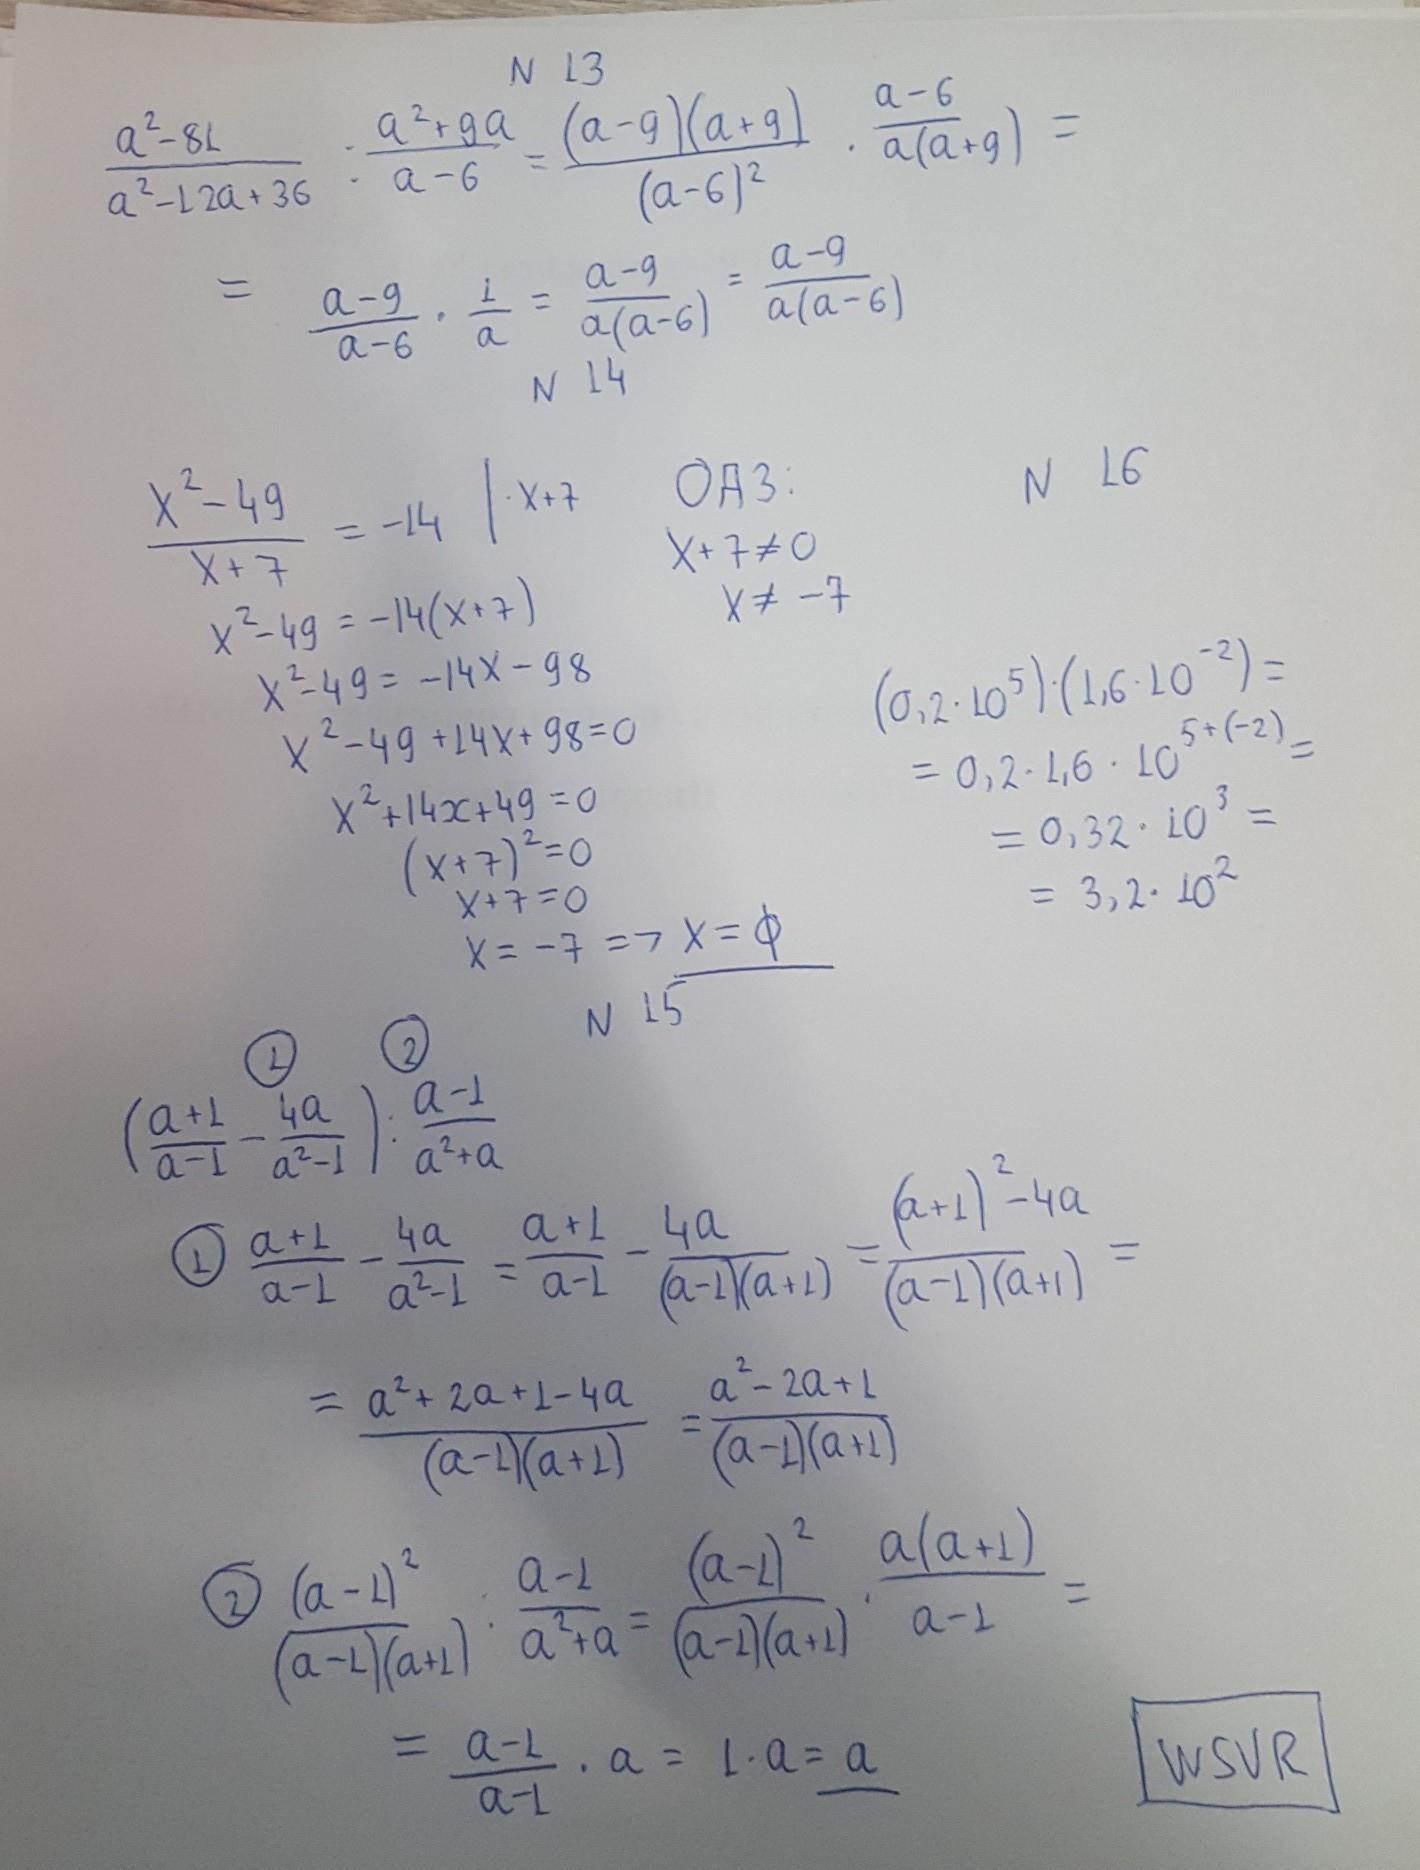 N 13
(a²-81)/(a²-12a+36) : (a²+9a)/(a-6) = ((a-9)(a+9))/((a-6)²) · (a-6)/(a(a+9)) =
= (a-9)/(a-6) · 1/a = (a-9)/(a(a-6)) = (a-9)/(a(a-6))
N 14
(x²-49)/(x+7) = -14 | ·x+7
x²-49 = -14(x+7)
x²-49 = -14x-98
x²-49+14x+98=0
x²+14x+49=0
(x+7)²=0
x+7=0
x=-7 => x=ϕ
ОДЗ:
x+7≠0
x≠-7
N 16
(0,2·10⁵)·(1,6·10⁻²)=
= 0,2·1,6·10⁵⁺⁽⁻²⁾=
= 0,32·10³ =
= 3,2·10²
N 15
① ②
((a+1)/(a-1) - 4a/(a²-1)) : (a-1)/(a²+a)
① (a+1)/(a-1) - 4a/(a²-1) = (a+1)/(a-1) - 4a/((a-1)(a+1)) = ((a+1)²-4a)/((a-1)(a+1)) =
= (a²+2a+1-4a)/((a-1)(a+1)) = (a²-2a+1)/((a-1)(a+1))
② (a-1)²/((a-1)(a+1)) : (a-1)/(a²+a) = (a-1)²/((a-1)(a+1)) · a(a+1)/(a-1) =
= (a-1)/(a-1) · a = 1·a = a
WSVR